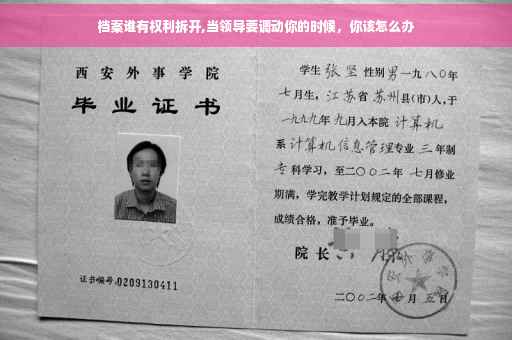 档案谁有权利拆开,当领导要调动你的时候，你该怎么办
西安外事学院
毕业证书
证书编号:0209130411
学生 张坚 性别 男 一九八〇年
七月生，江苏省 苏州县(市)人,于
一九九九年 九月入本院 计算机
系 计算机信息管理专业 三 年制
专 科学习，至二〇〇二年 七月修业
期满，学完教学计划规定的全部课程，
成绩合格，准予毕业。
院长
二〇〇二年 月 五日